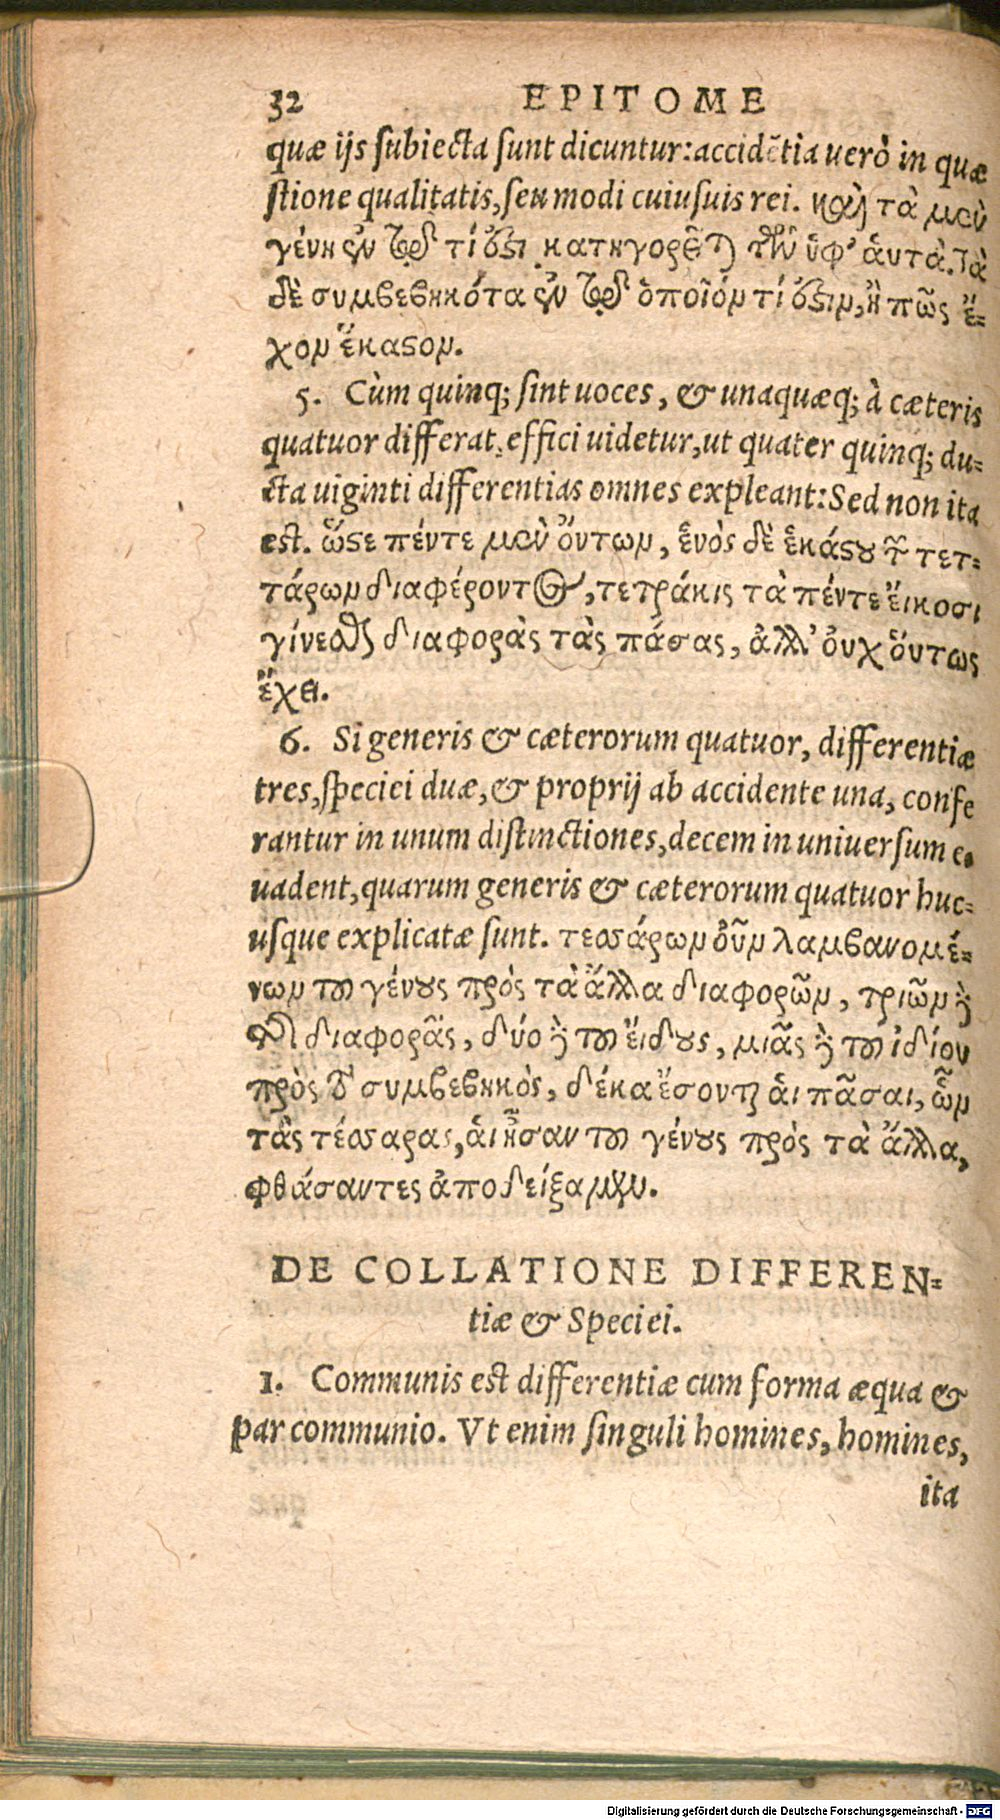 32 EPITOME
quæ ijs subiecta sunt dicuntur: accidētia uerò in quæ
stione qualitatis, seu modi cuiusuis rei. καὶ τὰ μὲν
γένη ἐν τῷ τί ἐστι κατηγορεῖται τῶν ὑφ’ ἁυτὰ. τὰ
δὲ συμβεβηκότα ἐν τῷ ὁποῖόν τί ἐστιν, ἢ πῶς ἔ-
χον ἕκαστον.
5. Cùm quinq; sint uoces, & unaquæq; à cæteris
quatuor differat, effici uidetur, ut quater quinq; du-
cta uiginti differentias omnes expleant: Sed non ita
est. ὥστε πέντε μὲν ὄντων, ἑνὸς δὲ ἑκάστου τῶν τετ-
τάρων διαφέροντος, τετράκις τὰ πέντε ἔικοσι
γίνεσθαι διαφορὰς τὰς πάσας, ἀλλ’ ὀυχ ὅυτως
ἔχει.
6. Si generis & cæterorum quatuor, differentiæ
tres, speciei duæ, & proprij ab accidente una, confe
rantur in unum distinctiones, decem in uniuersum e-
uadent, quarum generis & cæterorum quatuor huc-
usque explicatæ sunt. τεσσάρων ὀῦν λαμβανομέ-
νων τοῦ γένους πρὸς τὰ ἄλλα διαφορῶν, τριῶν δὲ
τῆς διαφορᾶς, δύο δὲ τοῦ ἔιδους, μιᾶς δὲ τοῦ ἰδίου
πρὸς τὸ συμβεβηκὸς, δέκα ἔσονται ἁι πᾶσαι, ὧν
τὰς τέσσαρας, ἁι ἦσαν τοῦ γένους πρὸς τὰ ἄλλα,
φθάσαντες ἀποδείξαμεν.
DE COLLATIONE DIFFEREN-
tiæ & Speciei.
1. Communis est differentiæ cum forma æqua &
par communio. Vt enim singuli homines, homines,
ita
Digitalisierung gefördert durch die Deutsche Forschungsgemeinschaft - DFG